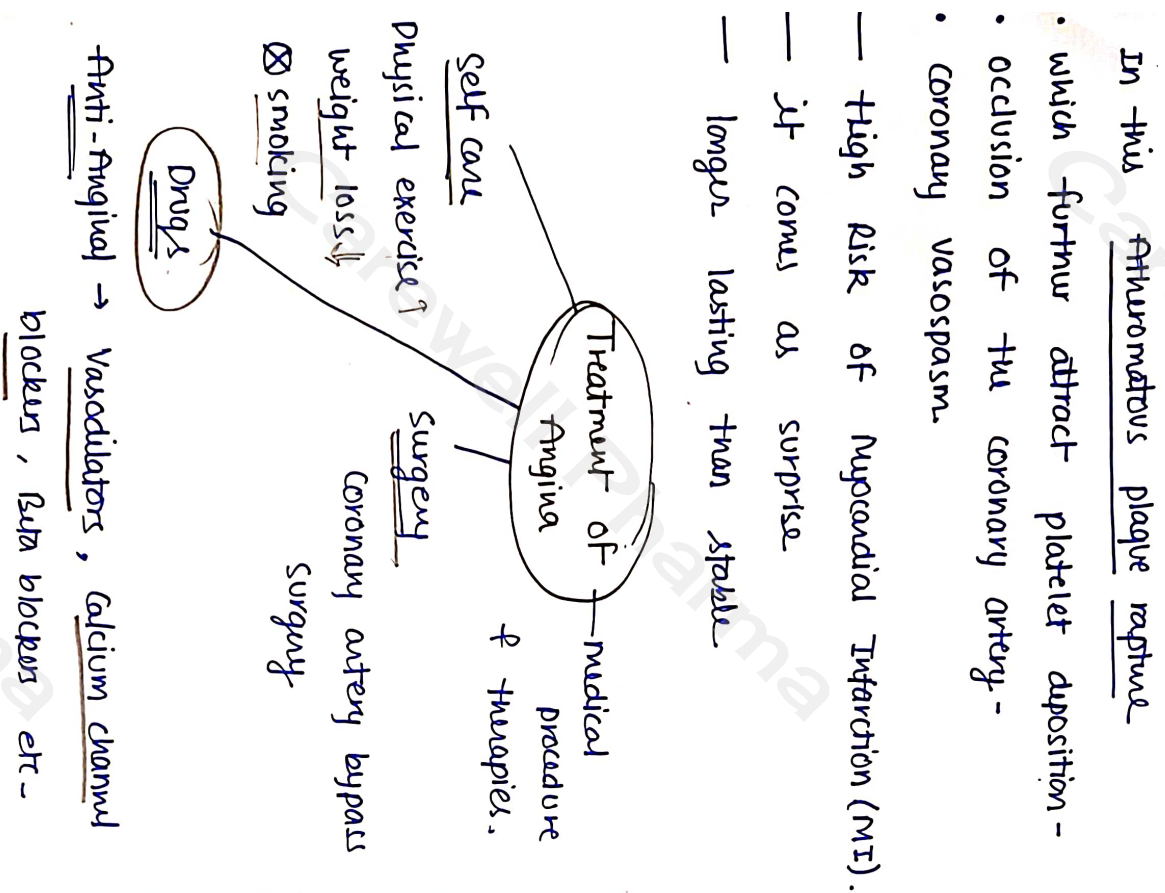 In this Atheromatous plaque rapture
• which furthur attract platelet deposition-
• occlusion of the coronary artery-
• coronary vasospasm.
— High Risk of Myocardial Infarction (MI).
— it comes as surprise
— longer lasting than stable
Treatment of
Angina
medical
procedure
& therapies.
Self care
Physical exercise↑
weight loss↓
⊗ smoking
Surgery
Coronary artery bypass
surgery
Drugs
Anti-Anginal → Vasodilators, Calcium channel
blockers, Beta blockers etc-
Carewell Pharma